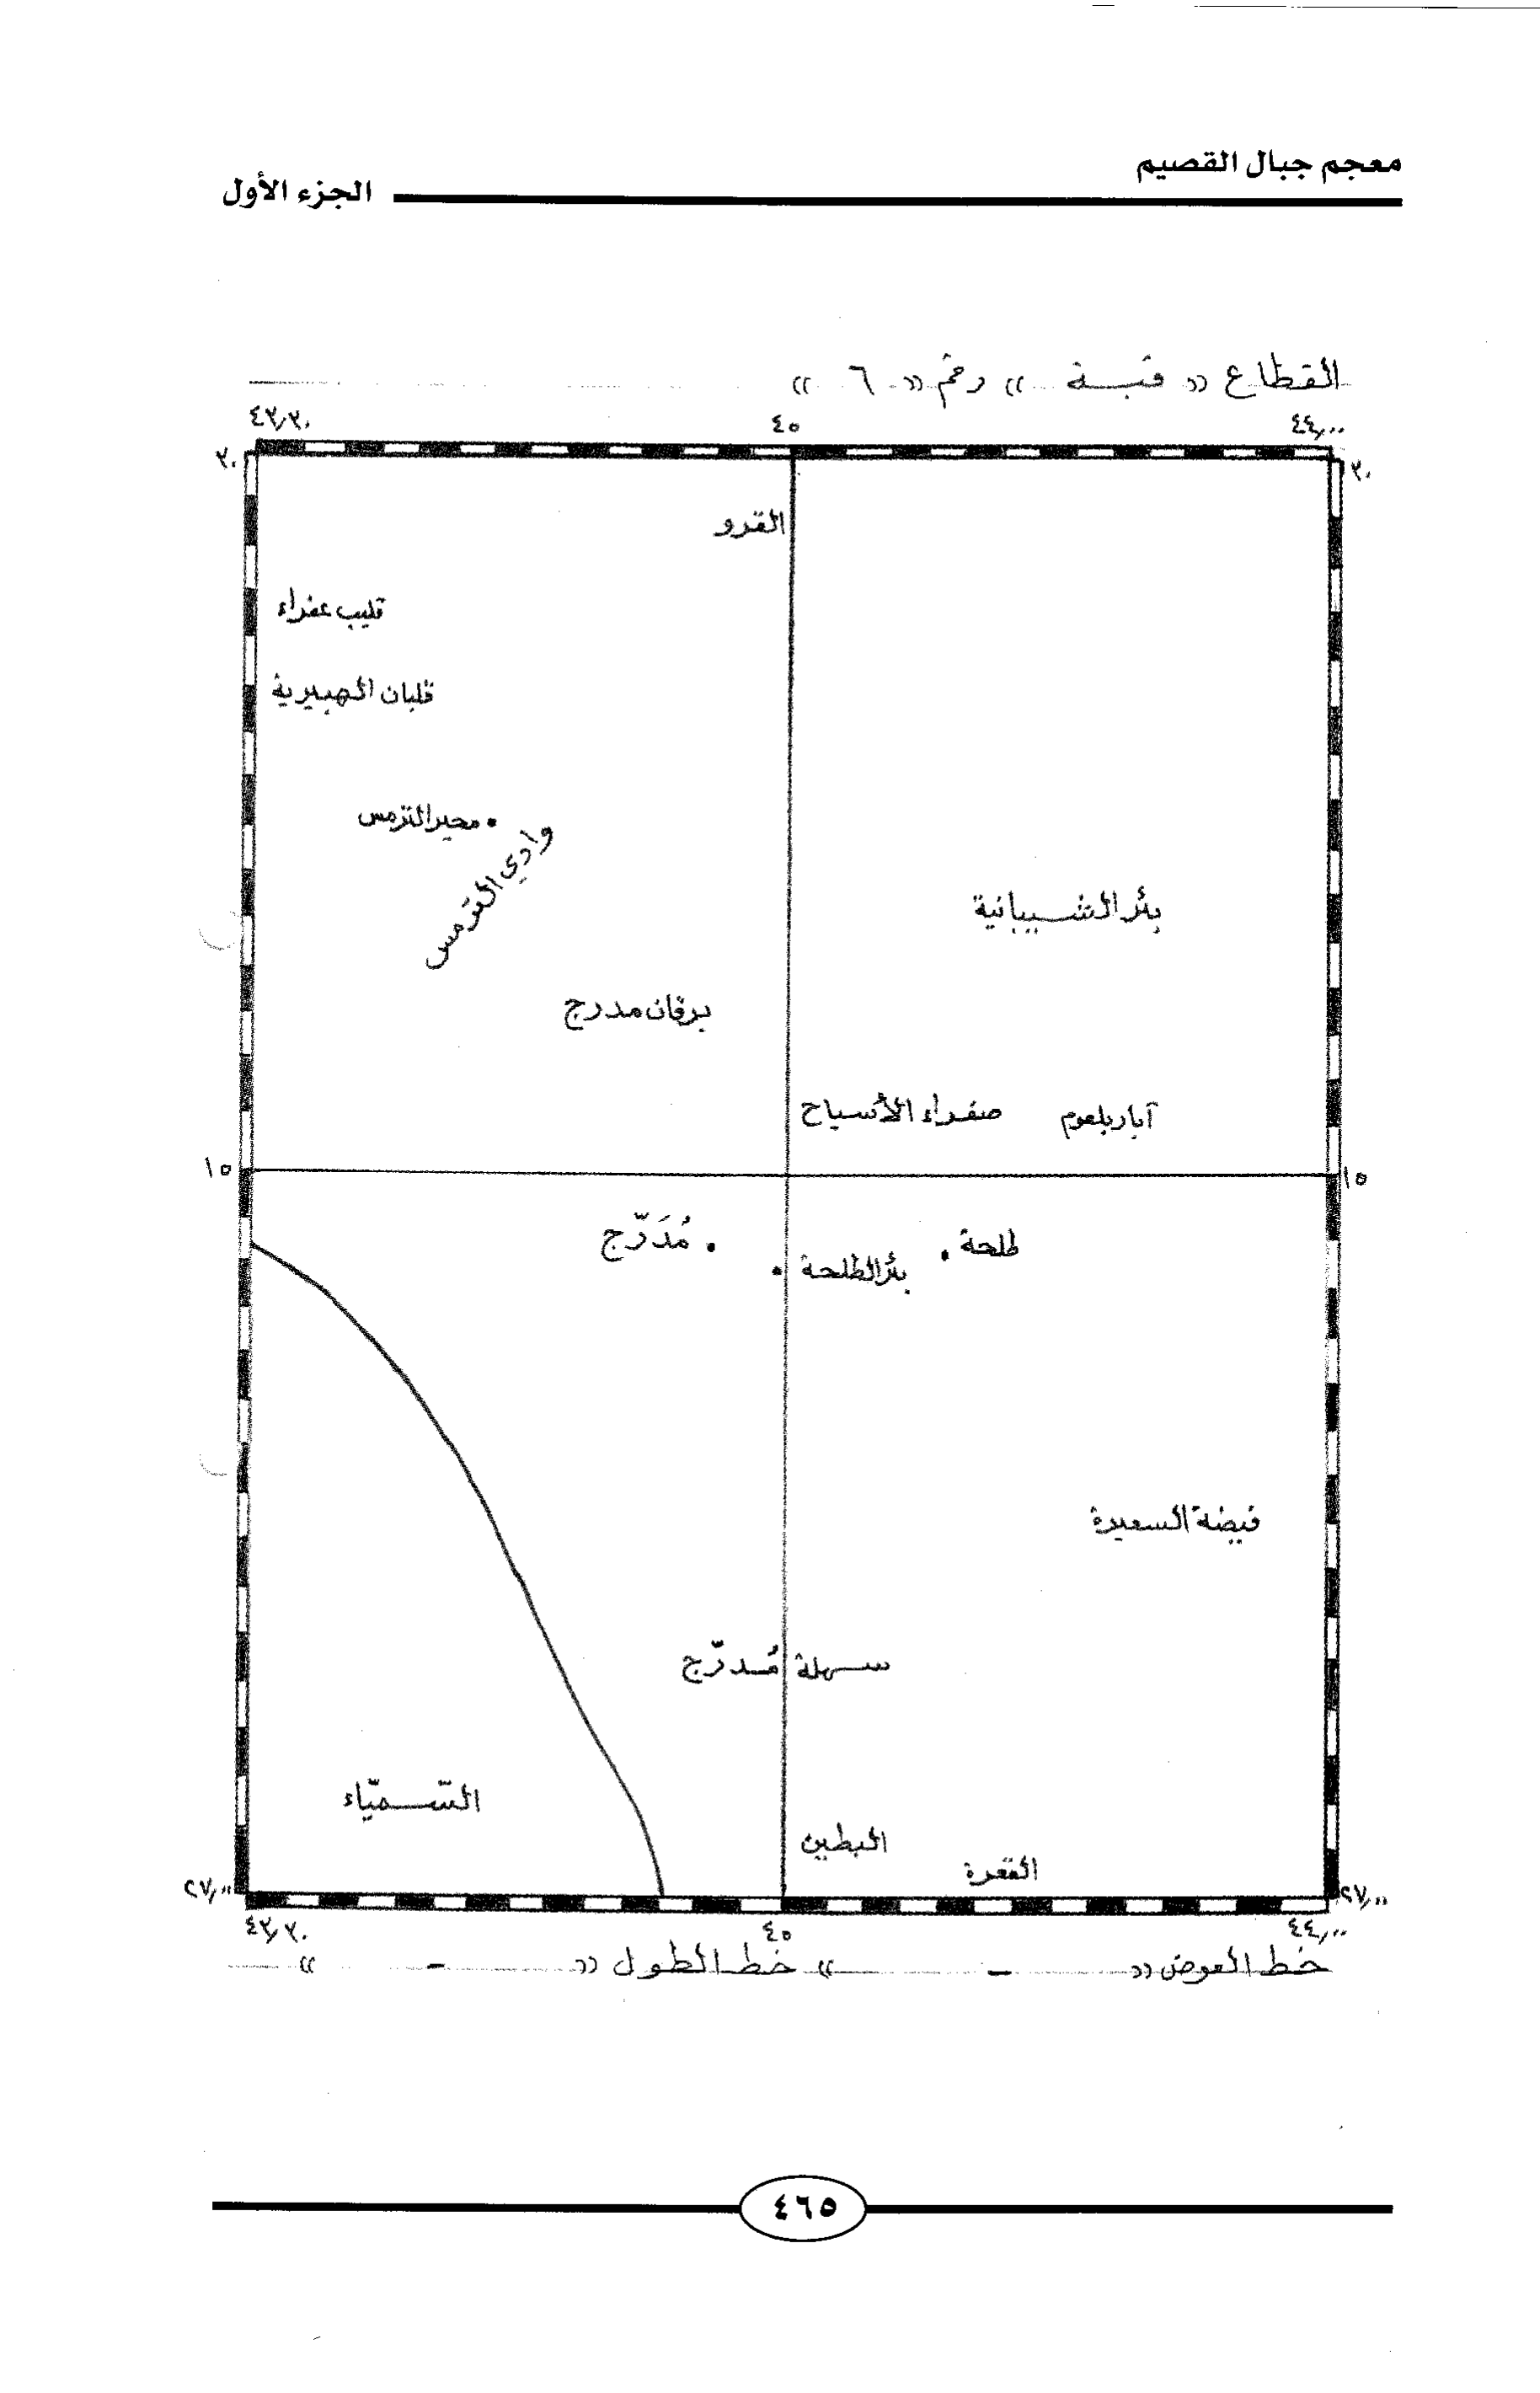 معجم جبال القصيم
الجزء الأول
القطاع « قبة » رقم « ٦ »
٤٣,٣٠ ٤٥ ٤٤,٠٠
٣٠ ٣٠
القرو
قليب عفراء
قلبان الهبيرية
محير الترمس
وادي الترمس
بئر الشيبانية
برقان مدرج
صفراء الأسياح آبار بلعوم
١٥ ١٥
مُدَرّج طلحة
بئر الطلحة
فيضة السعيرة
سهلة مُدرّج
السّميّاء
البطين
القعرة
٢٧,٠٠ ٢٧,٠٠
٤٣,٣٠ ٤٥ ٤٤,٠٠
خط العرض « - » خط الطول « - »
٤٦٥